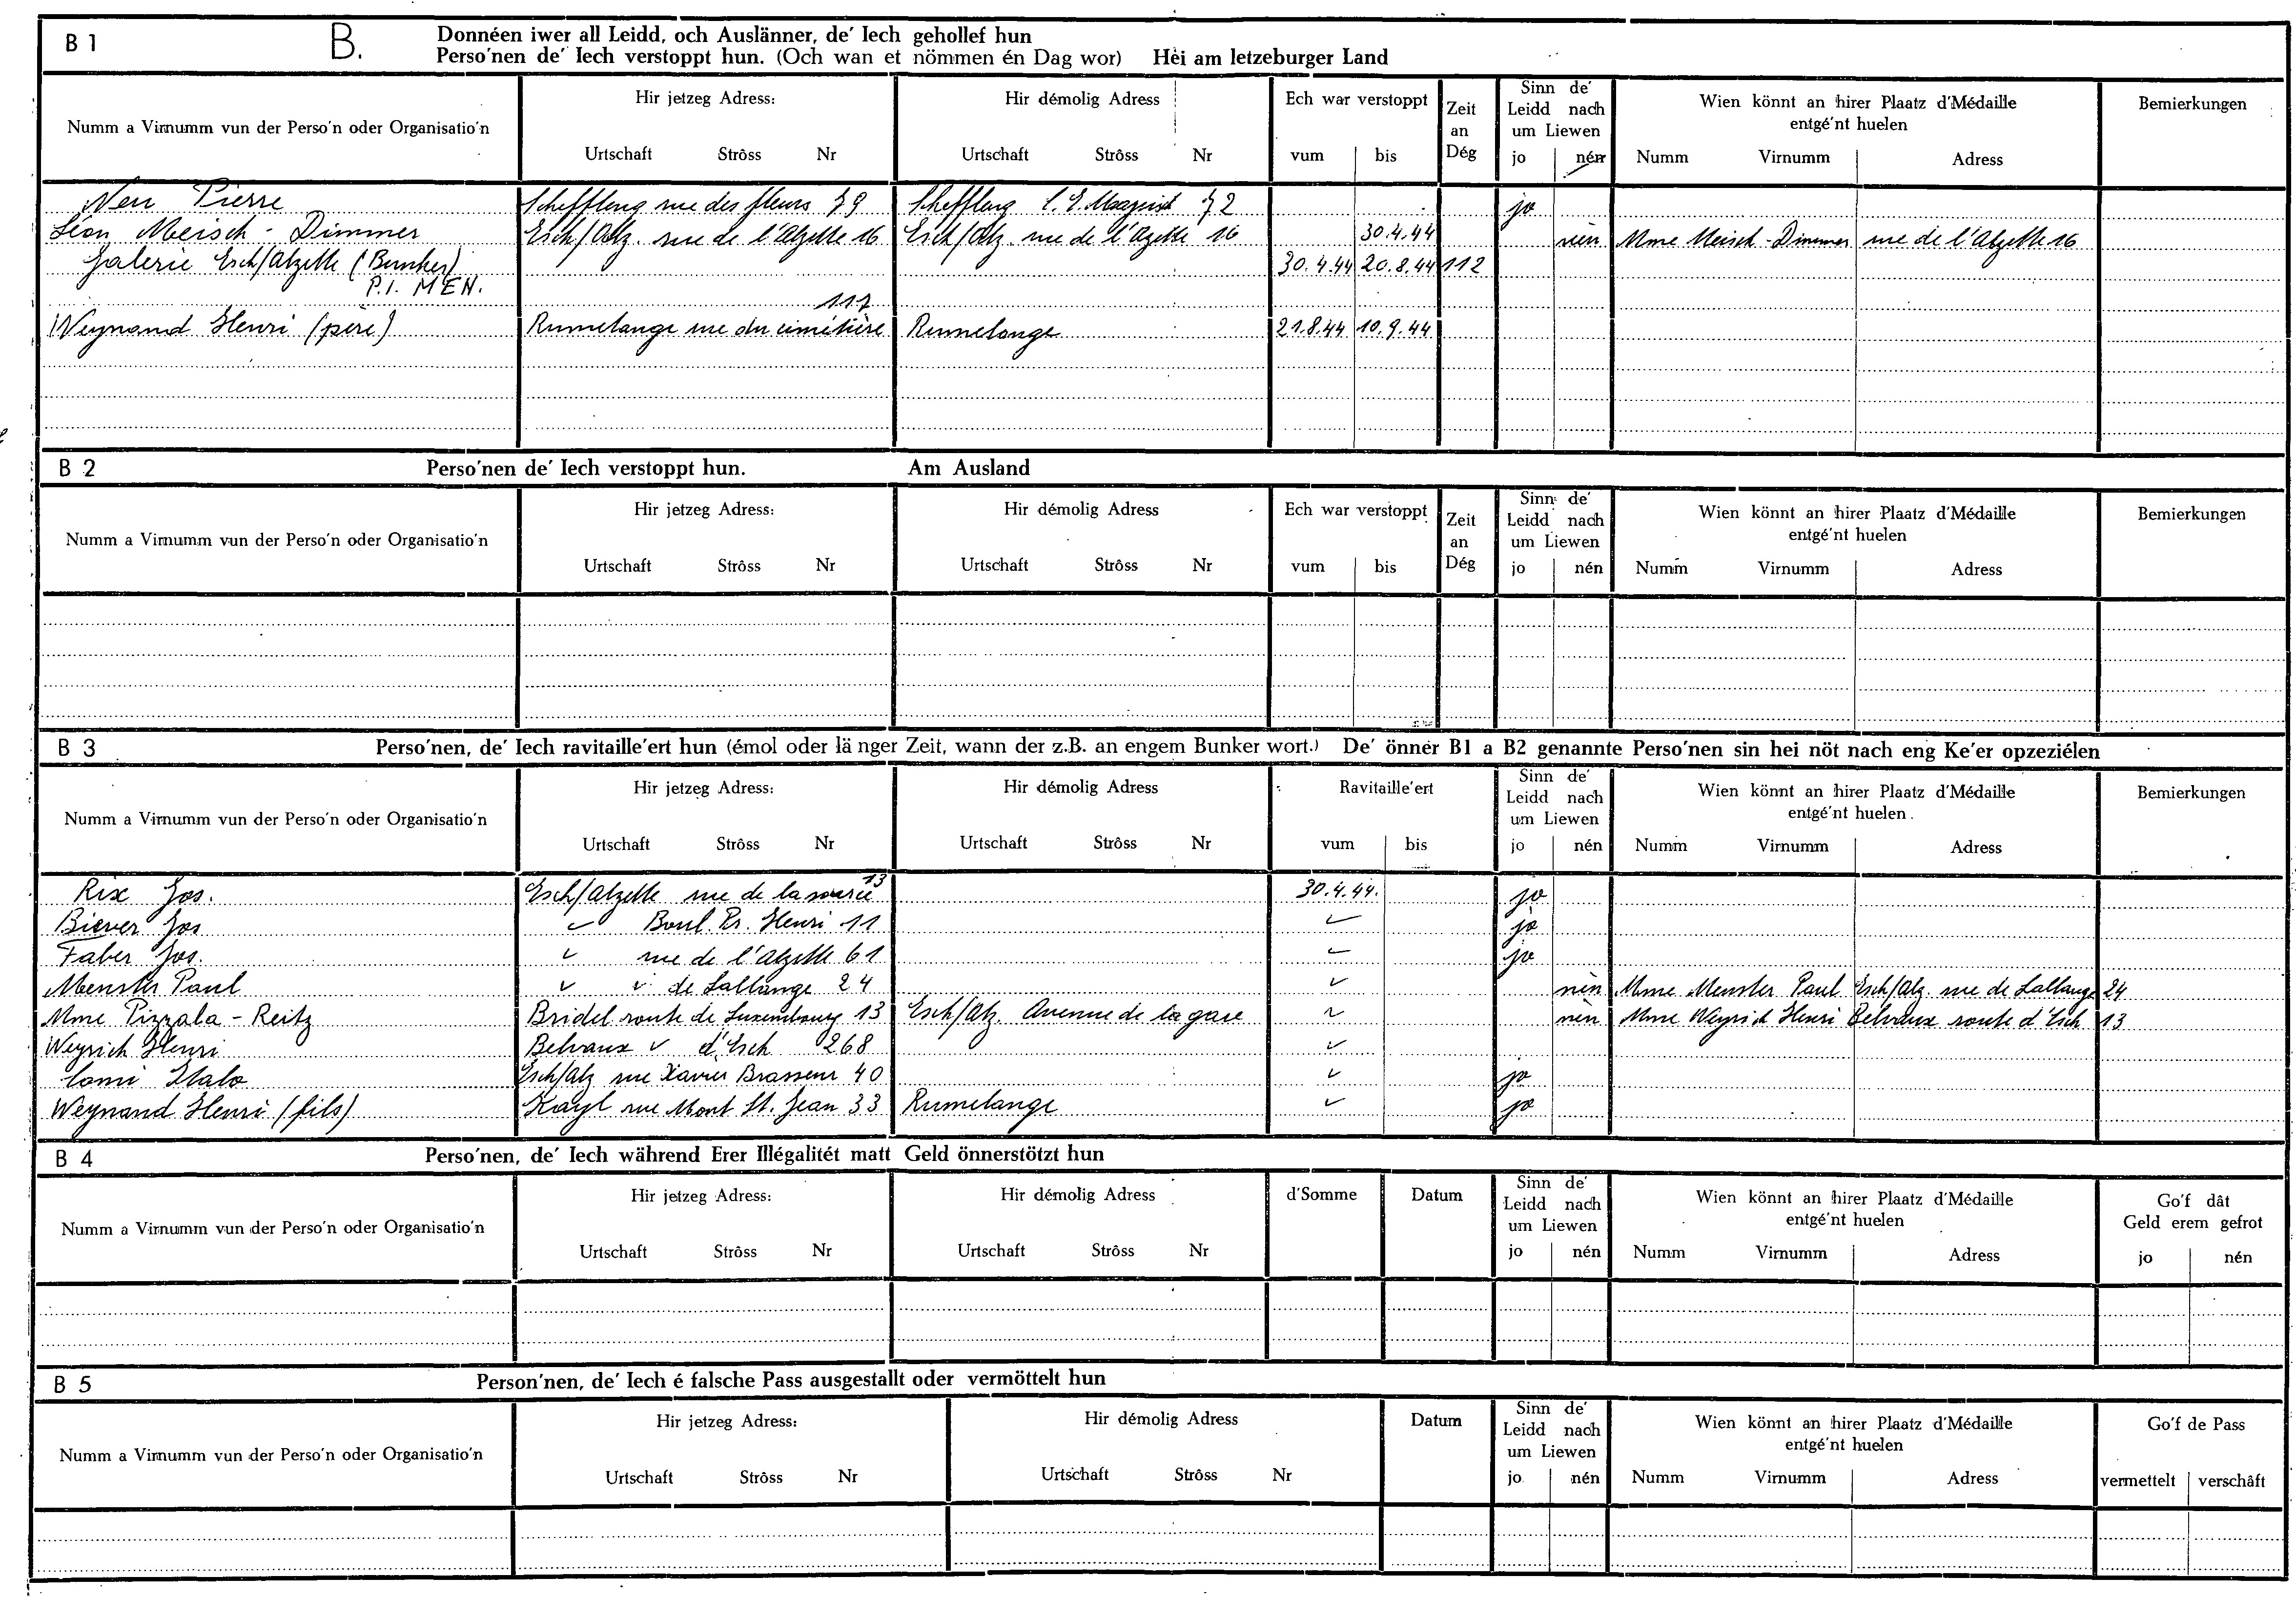 B 1 B. Donnéen iwer all Leidd, och Auslänner, de' Iech gehollef hun
Perso'nen de' Iech verstoppt hun. (Och wan et nömmen én Dag wor) Hèi am letzeburger Land
Numm a Virnumm vun der Perso'n oder Organisatio'n Hir jetzeg Adress: Hir démolig Adress Ech war verstoppt Zeit an Dég Sinn de' Leidd nach um Liewen Wien könnt an hirer Plaatz d'Médaille entgé'nt huelen Bemierkungen
Urtschaft Strôss Nr Urtschaft Strôss Nr vum bis jo nén Numm Virnumm Adress
Neu Pierre Scheffleng rue des fleurs 79 Scheffleng 72 jo
Léon Meisch - Dimmer Esch/Alz. rue de l'Alzette 16 Esch/Alz. rue de l'Azette 16 30.4.44 nèn Mme Meisch-Dimmer rue de l'Alzette 16
Galerie Esch/Alzette (Bunker) 30.4.44 20.8.44 112
P.I. MEN.
Weynand Henri (père) Rumelange rue du cimétière 111 Rumelange 21.8.44 10.9.44
B 2 Perso'nen de' Iech verstoppt hun. Am Ausland
Numm a Virnumm vun der Perso'n oder Organisatio'n Hir jetzeg Adress: Hir démolig Adress Ech war verstoppt Zeit an Dég Sinn de' Leidd nach um Liewen Wien könnt an hirer Plaatz d'Médaille entgé'nt huelen Bemierkungen
Urtschaft Strôss Nr Urtschaft Strôss Nr vum bis jo nén Numm Virnumm Adress
B 3 Perso'nen, de' Iech ravitaille'ert hun (émol oder länger Zeit, wann der z.B. an engem Bunker wort.) De' önner B1 a B2 genannte Perso'nen sin hei nöt nach eng Ke'er opzeziélen
Numm a Virnumm vun der Perso'n oder Organisatio'n Hir jetzeg Adress: Hir démolig Adress Ravitaille'ert Sinn de' Leidd nach um Liewen Wien könnt an hirer Plaatz d'Médaille entgé'nt huelen Bemierkungen
Urtschaft Strôss Nr Urtschaft Strôss Nr vum bis jo nén Numm Virnumm Adress
Rix Jos. Esch/Alzette rue de la 13 30.4.44. jo
Biever Jos Boul. Pr. Henri 11 jo
Faber Jos. rue de l'Alzette 61 jo
Menster Paul de Lallange 24 nèn Mme Menster Paul Esch/Alz rue de Lallange 24
Mme Pizzala - Reitz Bridel route de Luxembourg 13 Esch/Alz. Avenue de la gare nèn Mme Weyrich Henri Belvaux route d'Esch 13
Weyrich Henri Belvaux d'Esch 268
Comi Italo Esch/Alz rue Xavier Brasseur 40 jo
Weynand Henri (fils) Kayl rue Mont St. Jean 33 Rumelange jo
B 4 Perso'nen, de' Iech während Erer Illégalitét matt Geld önnerstötzt hun
Numm a Virnumm vun der Perso'n oder Organisatio'n Hir jetzeg Adress: Hir démolig Adress d'Somme Datum Sinn de' Leidd nach um Liewen Wien könnt an hirer Plaatz d'Médaille entgé'nt huelen Go'f dât Geld erem gefrot
Urtschaft Strôss Nr Urtschaft Strôss Nr jo nén Numm Virnumm Adress jo nén
B 5 Person'nen, de' Iech é falsche Pass ausgestallt oder vermöttelt hun
Numm a Virnumm vun der Perso'n oder Organisatio'n Hir jetzeg Adress: Hir démolig Adress Datum Sinn de' Leidd nach um Liewen Wien könnt an hirer Plaatz d'Médaille entgé'nt huelen Go'f de Pass
Urtschaft Strôss Nr Urtschaft Strôss Nr jo nén Numm Virnumm Adress vermettelt verschâft